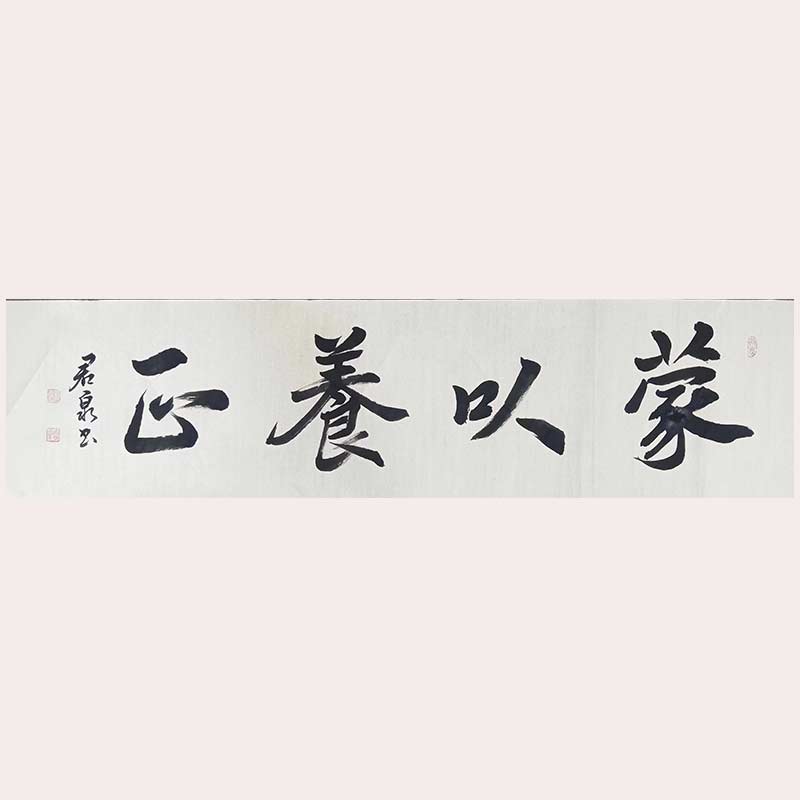 蒙以養正
君泉书